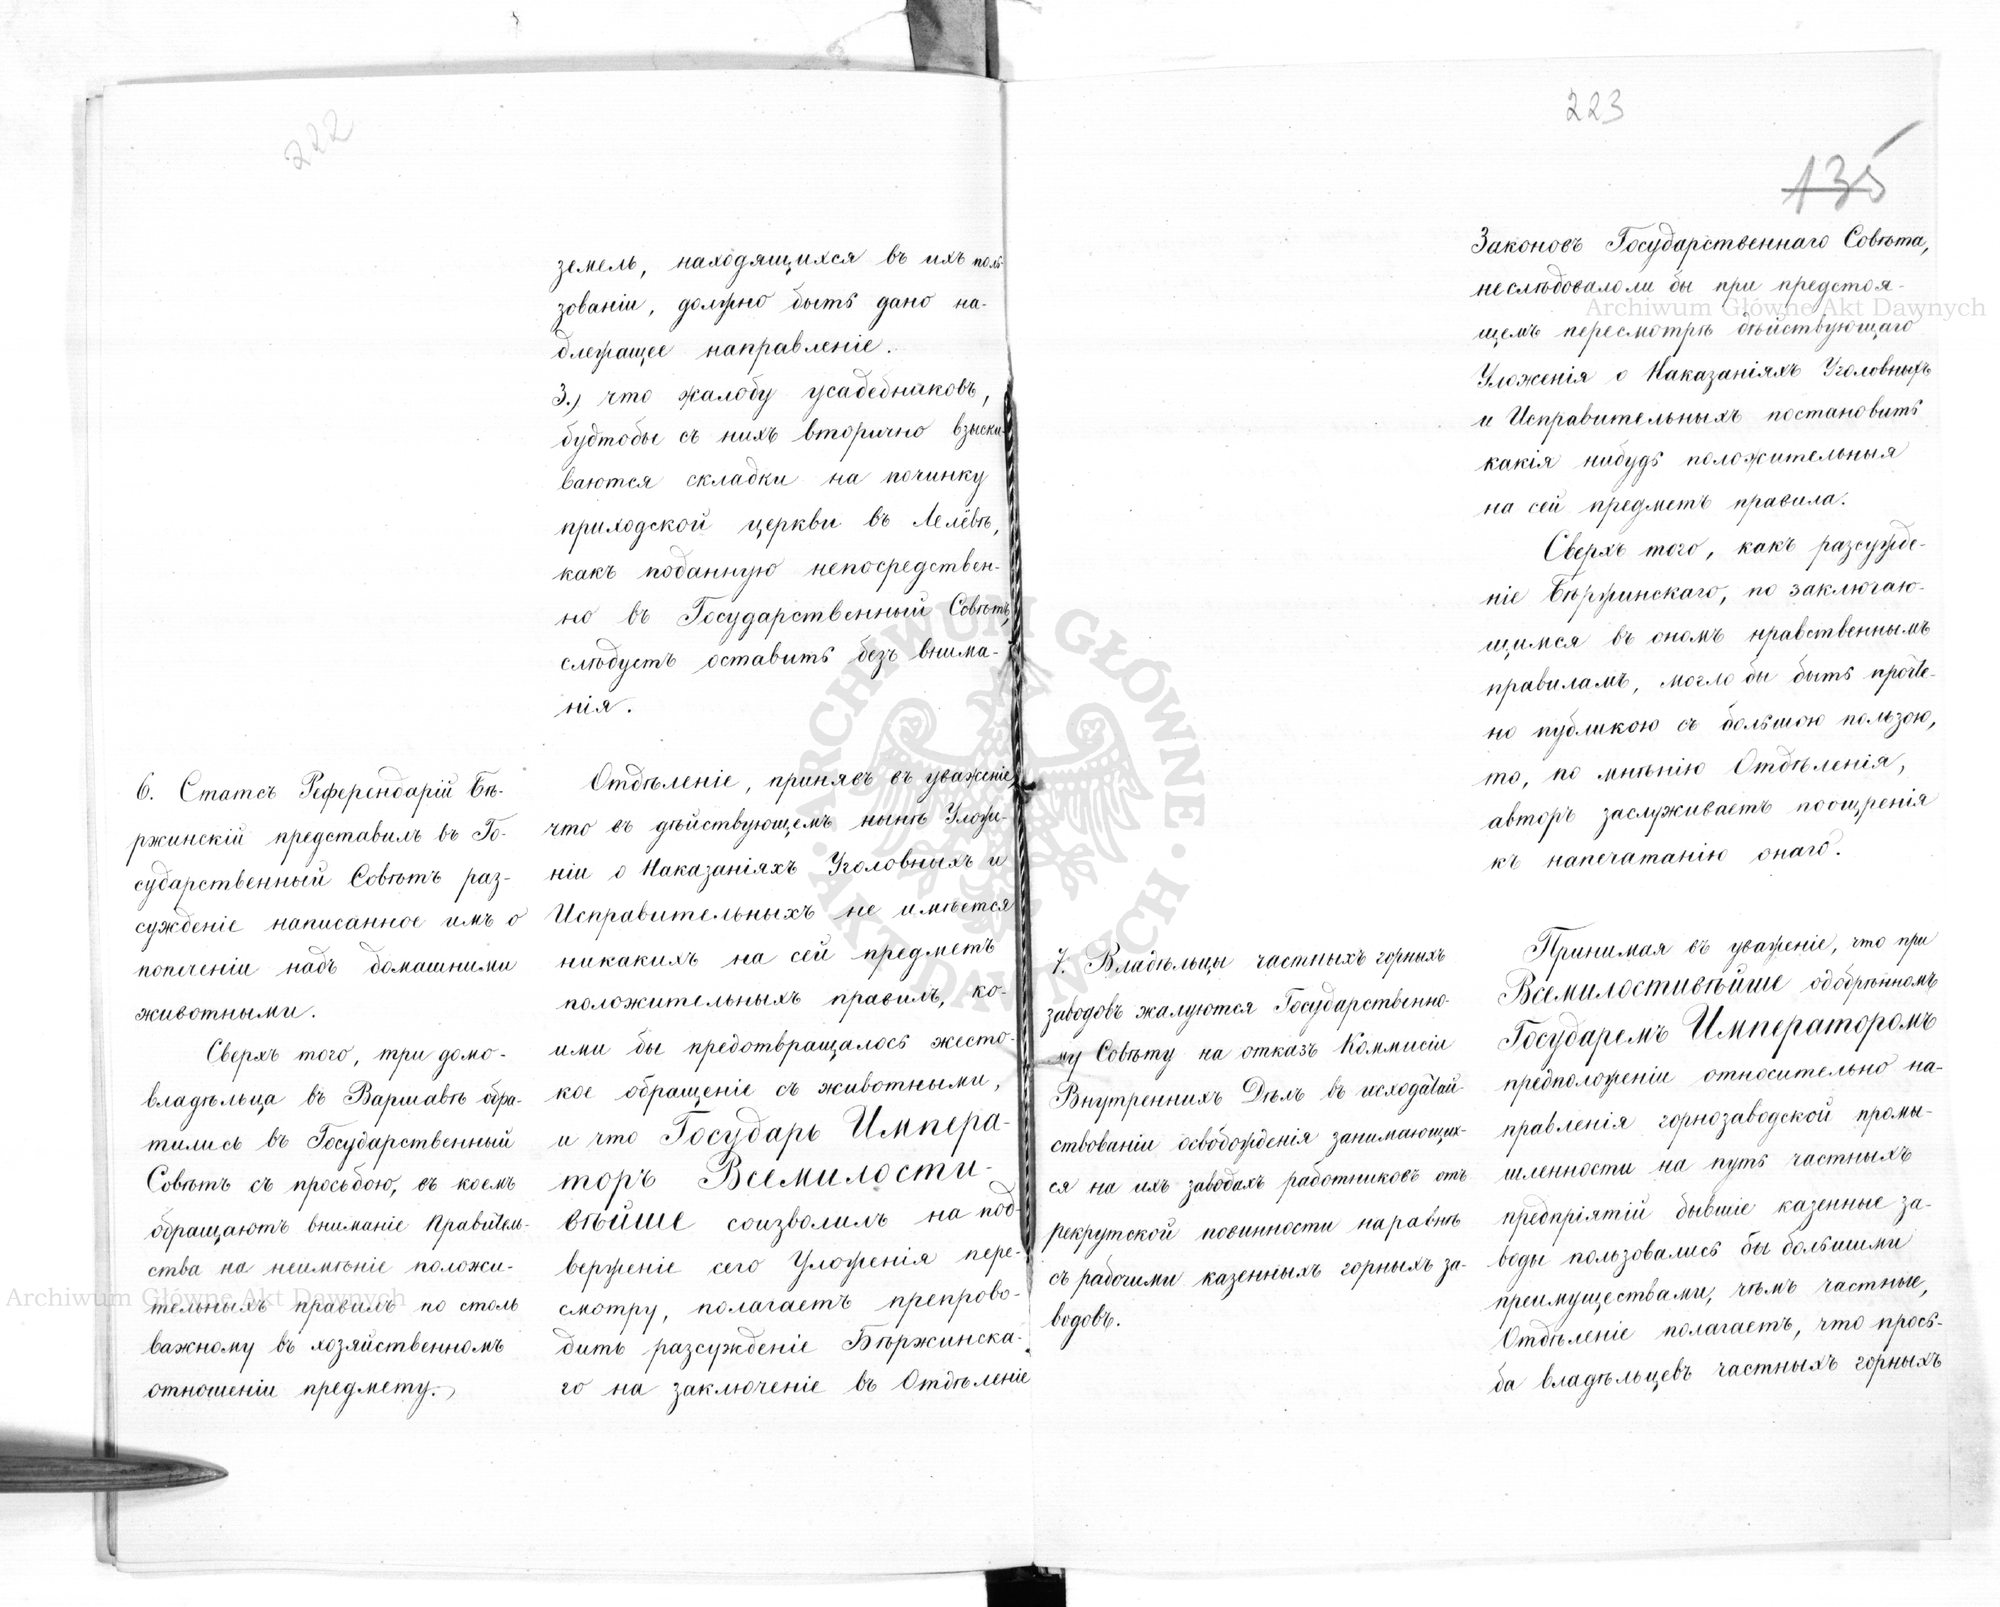 222
земель, находящихся въ ихъ поль-
зованіи, должно быть дано на-
длежащее направленіе.
3.) что жалобу усадебниковъ,
будтобы съ нихъ вторично взыски-
ваются складки на починку
приходской церкви въ Лелёвѣ,
какъ поданную непосредствен-
но въ Государственный Совѣтъ,
слѣдуетъ оставить безъ внима-
нія.
6. Статсъ Референдарій Бѣ-
ржинскій представилъ въ Го-
сударственный Совѣтъ раз-
сужденіе написанное имъ о
попеченіи надъ домашними
животными.
Сверхъ того, три домо-
владѣльца въ Варшавѣ обра-
тились въ Государственный
Совѣтъ съ просьбою, въ коемъ
обращаютъ вниманіе Правитель-
ства на неимѣніе положи-
тельныхъ правилъ по столь
важному въ хозяйственномъ
отношеніи предмету.
Отдѣленіе, принявъ въ уваженіе,
что въ дѣйствующемъ нынѣ Уложе-
ніи о Наказаніяхъ Уголовныхъ и
Исправительныхъ не имѣется
никакихъ на сей предметъ
положительныхъ правилъ, ко-
ими бы предотвращалось жесто-
кое обращеніе съ животными,
и что Государь Импера-
торъ Всемилости-
вѣйше соизволилъ на под-
верженіе сего Уложенія пере-
смотру, полагаетъ препрово-
дить разсужденіе Бѣржинска-
го на заключеніе въ Отдѣленіе
223
135
Законовъ Государственнаго Совѣта,
неслѣдовалоли бы при предстоя-
щемъ пересмотрѣ дѣйствующаго
Уложенія о Наказаніяхъ Уголовныхъ
и Исправительныхъ постановить
какія нибудь положительныя
на сей предметъ правила.
Сверхъ того, какъ разсужде-
ніе Бѣржинскаго, по заключаю-
щимся въ ономъ нравственнымъ
правиламъ, моглобы быть прочте-
но публикою съ большою пользою,
то, по мнѣнію Отдѣленія,
авторъ заслуживаетъ поощренія
къ напечатанію онаго.
7. Владѣльцы частныхъ горныхъ
заводовъ жалуются Государственно-
му Совѣту на отказъ Коммисіи
Внутреннихъ Дѣлъ въ исходатай-
ствованіи освобожденія занимающих-
ся на ихъ заводахъ работниковъ отъ
рекрутской повинности наравнѣ
съ рабочими казенныхъ горныхъ за-
водовъ.
Принимая въ уваженіе, что при
Всемилостивѣйше одобрѣнномъ
Государемъ Императоромъ
предположеніи относительно на-
правленія горнозаводской промы-
шленности на путь частныхъ
предпріятій бывшіе казенные за-
воды пользовались бы большими
преимуществами, чѣмъ частные,
Отдѣленіе полагаетъ, что прось-
ба владѣльцевъ частныхъ горныхъ
Archiwum Główne Akt Dawnych
Archiwum Główne Akt Dawnych
ARCHIWUM GŁÓWNE AKT DAWNYCH